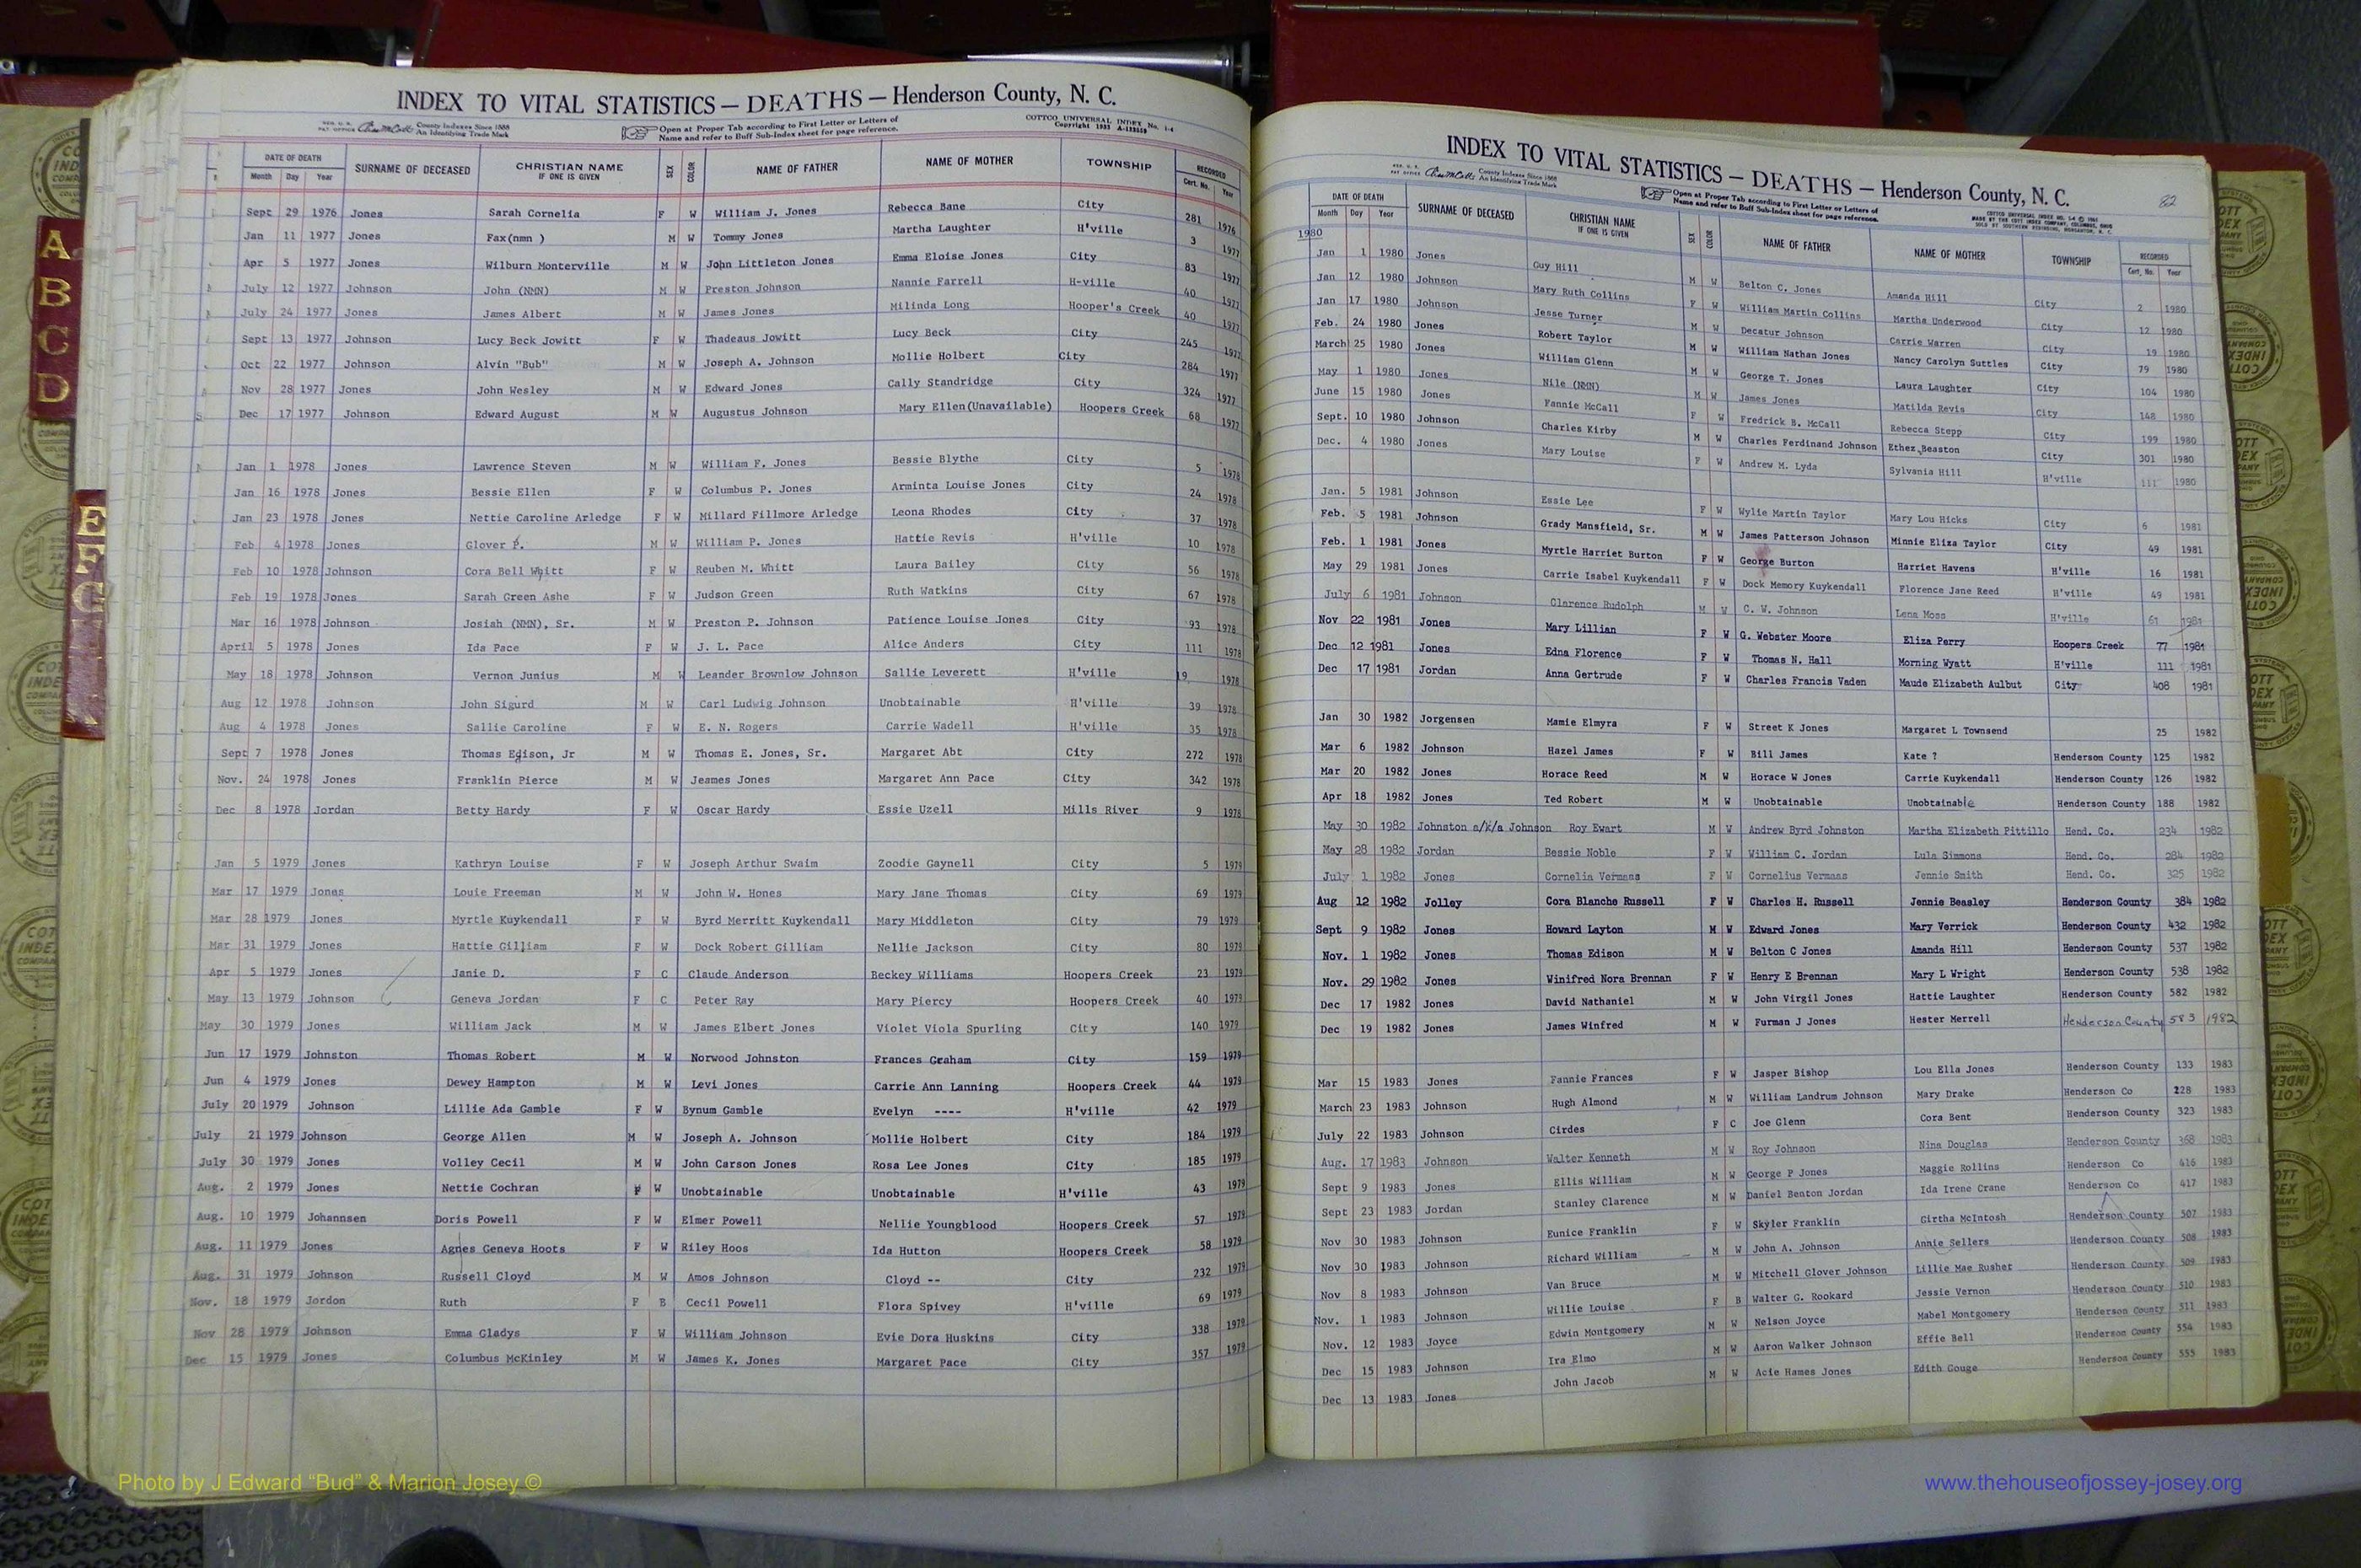 INDEX TO VITAL STATISTICS — DEATHS — Henderson County, N. C.
County Indexes Since 1888
An Identifying Trade Mark
Open at Proper Tab according to First Letter or Letters of
Name and refer to Buff Sub-Index sheet for page reference.
COTTCO UNIVERSAL INDEX No. 1-4
DATE OF DEATH SURNAME OF DECEASED CHRISTIAN NAME IF ONE IS GIVEN SEX COLOR NAME OF FATHER NAME OF MOTHER TOWNSHIP RECORDED
Month Day Year Cert. No. Year
Sept 29 1976 Jones Sarah Cornelia F W William J. Jones Rebecca Bane City 281 1976
Jan 11 1977 Jones Fax(nmn ) M W Tommy Jones Martha Laughter H'ville 3 1977
Apr 5 1977 Jones Wilburn Monterville M W John Littleton Jones Emma Eloise Jones City 83 1977
July 12 1977 Johnson John (NMN) M W Preston Johnson Nannie Farrell H-ville 40 1977
July 24 1977 Jones James Albert M W James Jones Milinda Long Hooper's Creek 40 1977
Sept 13 1977 Johnson Lucy Beck Jowitt F W Thadeaus Jowitt Lucy Beck City 245 1977
Oct 22 1977 Johnson Alvin "Bub" M W Joseph A. Johnson Mollie Holbert City 284 1977
Nov 28 1977 Jones John Wesley M W Edward Jones Cally Standridge City 324 1977
Dec 17 1977 Johnson Edward August M W Augustus Johnson Mary Ellen(Unavailable) Hoopers Creek 68 1977
Jan 1 1978 Jones Lawrence Steven M W William F. Jones Bessie Blythe City 5 1978
Jan 16 1978 Jones Bessie Ellen F W Columbus P. Jones Arminta Louise Jones City 24 1978
Jan 23 1978 Jones Nettie Caroline Arledge F W Millard Fillmore Arledge Leona Rhodes City 37 1978
Feb 4 1978 Jones Glover P. M W William P. Jones Hattie Revis H'ville 10 1978
Feb 10 1978 Johnson Cora Bell Whitt F W Reuben M. Whitt Laura Bailey City 56 1978
Feb 19 1978 Jones Sarah Green Ashe F W Judson Green Ruth Watkins City 67 1978
Mar 16 1978 Johnson Josiah (NMN), Sr. M W Preston P. Johnson Patience Louise Jones City 93 1978
April 5 1978 Jones Ida Pace F W J. L. Pace Alice Anders City 111 1978
May 18 1978 Johnson Vernon Junius M W Leander Brownlow Johnson Sallie Leverett H'ville 19 1978
Aug 12 1978 Johnson John Sigurd M W Carl Ludwig Johnson Unobtainable H'ville 39 1978
Aug 4 1978 Jones Sallie Caroline F W E. N. Rogers Carrie Wadell H'ville 35 1978
Sept 7 1978 Jones Thomas Edison, Jr M W Thomas E. Jones, Sr. Margaret Abt City 272 1978
Nov. 24 1978 Jones Franklin Pierce M W Jeames Jones Margaret Ann Pace City 342 1978
Dec 8 1978 Jordan Betty Hardy F W Oscar Hardy Essie Uzell Mills River 9 1978
Jan 5 1979 Jones Kathryn Louise F W Joseph Arthur Swaim Zoodie Gaynell City 5 1979
Mar 17 1979 Jones Louie Freeman M W John W. Hones Mary Jane Thomas City 69 1979
Mar 28 1979 Jones Myrtle Kuykendall F W Byrd Merritt Kuykendall Mary Middleton City 79 1979
Mar 31 1979 Jones Hattie Gilliam F W Dock Robert Gilliam Nellie Jackson City 80 1979
Apr 5 1979 Jones Janie D. F C Claude Anderson Beckey Williams Hoopers Creek 23 1979
May 13 1979 Johnson Geneva Jordan F C Peter Ray Mary Piercy Hoopers Creek 40 1979
May 30 1979 Jones William Jack M W James Elbert Jones Violet Viola Spurling City 140 1979
Jun 17 1979 Johnston Thomas Robert M W Norwood Johnston Frances Graham City 159 1979
Jun 4 1979 Jones Dewey Hampton M W Levi Jones Carrie Ann Lanning Hoopers Creek 44 1979
July 20 1979 Johnson Lillie Ada Gamble F W Bynum Gamble Evelyn ---- H'ville 42 1979
July 21 1979 Johnson George Allen M W Joseph A. Johnson Mollie Holbert City 184 1979
July 30 1979 Jones Volley Cecil M W John Carson Jones Rosa Lee Jones City 185 1979
Aug. 2 1979 Jones Nettie Cochran F W Unobtainable Unobtainable H'ville 43 1979
Aug. 10 1979 Johannsen Doris Powell F W Elmer Powell Nellie Youngblood Hoopers Creek 57 1979
Aug. 11 1979 Jones Agnes Geneva Hoots F W Riley Hoos Ida Hutton Hoopers Creek 58 1979
Aug. 31 1979 Johnson Russell Cloyd M W Amos Johnson Cloyd -- City 232 1979
Nov. 18 1979 Jordon Ruth F B Cecil Powell Flora Spivey H'ville 69 1979
Nov 28 1979 Johnson Emma Gladys F W William Johnson Evie Dora Huskins City 338 1979
Dec 15 1979 Jones Columbus McKinley M W James K. Jones Margaret Pace City 357 1979
INDEX TO VITAL STATISTICS — DEATHS — Henderson County, N. C.
82
County Indexes Since 1888
An Identifying Trade Mark
Open at Proper Tab according to First Letter or Letters of
Name and refer to Buff Sub-Index sheet for page reference.
DATE OF DEATH SURNAME OF DECEASED CHRISTIAN NAME IF ONE IS GIVEN SEX COLOR NAME OF FATHER NAME OF MOTHER TOWNSHIP RECORDED
Month Day Year Cert. No. Year
1980
Jan 1 1980 Jones Guy Hill M W Belton C. Jones Amanda Hill City 2 1980
Jan 12 1980 Johnson Mary Ruth Collins F W William Martin Collins Martha Underwood City 12 1980
Jan 17 1980 Johnson Jesse Turner M W Decatur Johnson Carrie Warren City 19 1980
Feb. 24 1980 Jones Robert Taylor M W William Nathan Jones Nancy Carolyn Suttles City 79 1980
March 25 1980 Jones William Glenn M W George T. Jones Laura Laughter City 104 1980
May 1 1980 Jones Nile (NMN) M W James Jones Matilda Revis City 148 1980
June 15 1980 Jones Fannie McCall F W Fredrick B. McCall Rebecca Stepp City 199 1980
Sept. 10 1980 Johnson Charles Kirby M W Charles Ferdinand Johnson Ethez Beaston City 301 1980
Dec. 4 1980 Jones Mary Louise F W Andrew M. Lyda Sylvania Hill H'ville 111 1980
Jan. 5 1981 Johnson Essie Lee F W Wylie Martin Taylor Mary Lou Hicks City 6 1981
Feb. 5 1981 Johnson Grady Mansfield, Sr. M W James Patterson Johnson Minnie Eliza Taylor City 49 1981
Feb. 1 1981 Jones Myrtle Harriet Burton F W George Burton Harriet Havens H'ville 16 1981
May 29 1981 Jones Carrie Isabel Kuykendall F W Dock Memory Kuykendall Florence Jane Reed H'ville 49 1981
July 6 1981 Johnson Clarence Rudolph M W C. W. Johnson Lena Moss H'ville 61 1981
Nov 22 1981 Jones Mary Lillian F W G. Webster Moore Eliza Perry Hoopers Creek 77 1981
Dec 12 1981 Jones Edna Florence F W Thomas N. Hall Morning Wyatt H'ville 111 1981
Dec 17 1981 Jordan Anna Gertrude F W Charles Francis Vaden Maude Elizabeth Aulbut City 408 1981
Jan 30 1982 Jorgensen Mamie Elmyra F W Street K Jones Margaret L Townsend 25 1982
Mar 6 1982 Johnson Hazel James F W Bill James Kate ? Henderson County 125 1982
Mar 20 1982 Jones Horace Reed M W Horace W Jones Carrie Kuykendall Henderson County 126 1982
Apr 18 1982 Jones Ted Robert M W Unobtainable Unobtainable Henderson County 188 1982
May 30 1982 Johnston a/k/a Johnson Roy Ewart M W Andrew Byrd Johnston Martha Elizabeth Pittillo Hend. Co. 234 1982
May 28 1982 Jordan Bessie Noble F W William C. Jordan Lula Simmons Hend. Co. 284 1982
July 1 1982 Jones Cornelia Vermaas F W Cornelius Vermaas Jennie Smith Hend. Co. 325 1982
Aug 12 1982 Jolley Cora Blanche Russell F W Charles H. Russell Jennie Beasley Henderson County 384 1982
Sept 9 1982 Jones Howard Layton M W Edward Jones Mary Verrick Henderson County 432 1982
Nov. 1 1982 Jones Thomas Edison M W Belton C Jones Amanda Hill Henderson County 537 1982
Nov. 29 1982 Jones Winifred Nora Brennan F W Henry E Brennan Mary L Wright Henderson County 538 1982
Dec 17 1982 Jones David Nathaniel M W John Virgil Jones Hattie Laughter Henderson County 582 1982
Dec 19 1982 Jones James Winfred M W Furman J Jones Hester Merrell Henderson County 583 1982
Mar 15 1983 Jones Fannie Frances F W Jasper Bishop Lou Ella Jones Henderson County 133 1983
March 23 1983 Johnson Hugh Almond M W William Landrum Johnson Mary Drake Henderson Co 228 1983
July 22 1983 Johnson Cirdes F C Joe Glenn Cora Bent Henderson County 323 1983
Aug. 17 1983 Johnson Walter Kenneth M W Roy Johnson Nina Douglas Henderson County 368 1983
Sept 9 1983 Jones Ellis William M W George P Jones Maggie Rollins Henderson Co 416 1983
Sept 23 1983 Jordan Stanley Clarence M W Daniel Benton Jordan Ida Irene Crane Henderson Co 417 1983
Nov 30 1983 Johnson Eunice Franklin F W Skyler Franklin Girtha McIntosh Henderson County 507 1983
Nov 30 1983 Johnson Richard William M W John A. Johnson Annie Sellers Henderson County 508 1983
Nov 8 1983 Johnson Van Bruce M W Mitchell Glover Johnson Lillie Mae Rusher Henderson County 509 1983
Nov. 1 1983 Johnson Willie Louise F B Walter G. Rookard Jessie Vernon Henderson County 510 1983
Nov. 12 1983 Joyce Edwin Montgomery M W Nelson Joyce Mabel Montgomery Henderson County 511 1983
Dec 15 1983 Johnson Ira Elmo M W Aaron Walker Johnson Effie Bell Henderson County 554 1983
Dec 13 1983 Jones John Jacob M W Acie Hames Jones Edith Gouge Henderson County 555 1983
A
B
C
D
E
F
G
Photo by J Edward “Bud” & Marion Josey ©
www.thehouseofjossey-josey.org